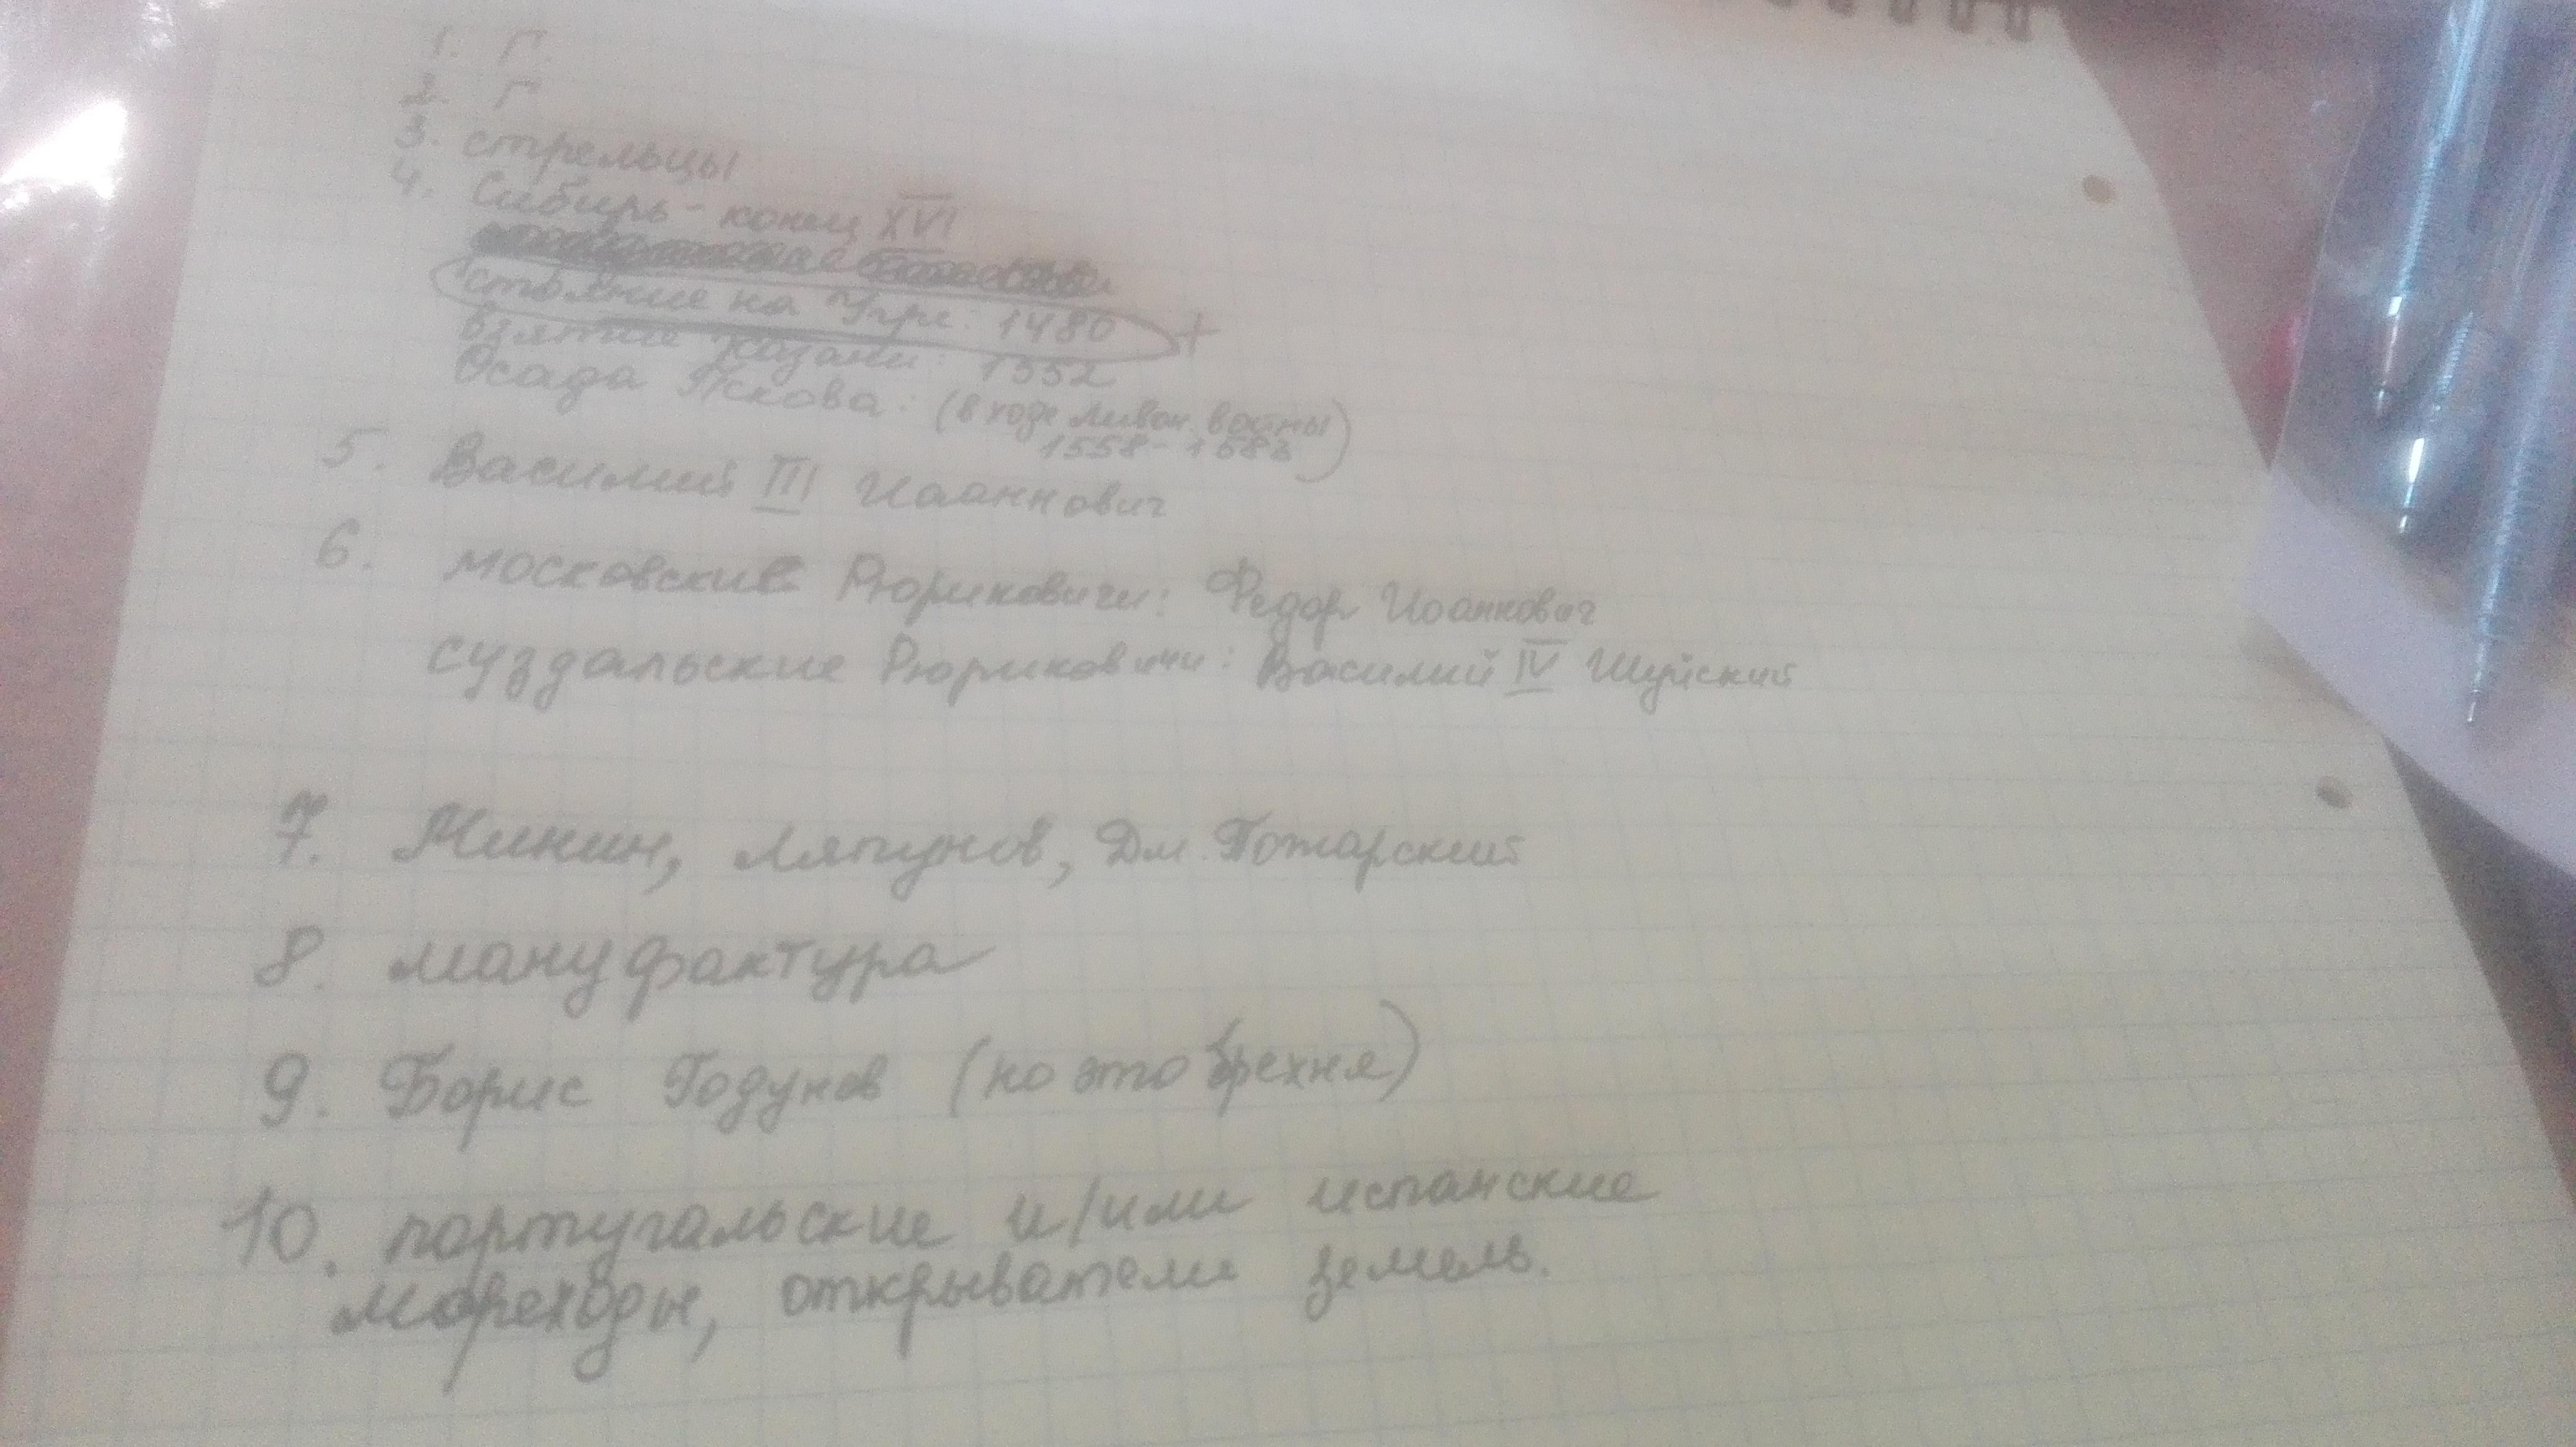 1. Г.
2. Г
3. стрельцы
4. Сибирь - конец XVI
стояние на Угре: 1480 +
взятие Казани: 1552
Осада Пскова: (в ходе Ливон. войны
1558-1583)
5. Василий III Иоаннович
6. московские Рюриковичи: Федор Иоаннович
суздальские Рюриковичи: Василий IV Шуйский
7. Минин, Ляпунов, Дм. Пожарский
8. мануфактура
9. Борис Годунов (но это брехня)
10. португальские и/или испанские
мореходы, открыватели земель.